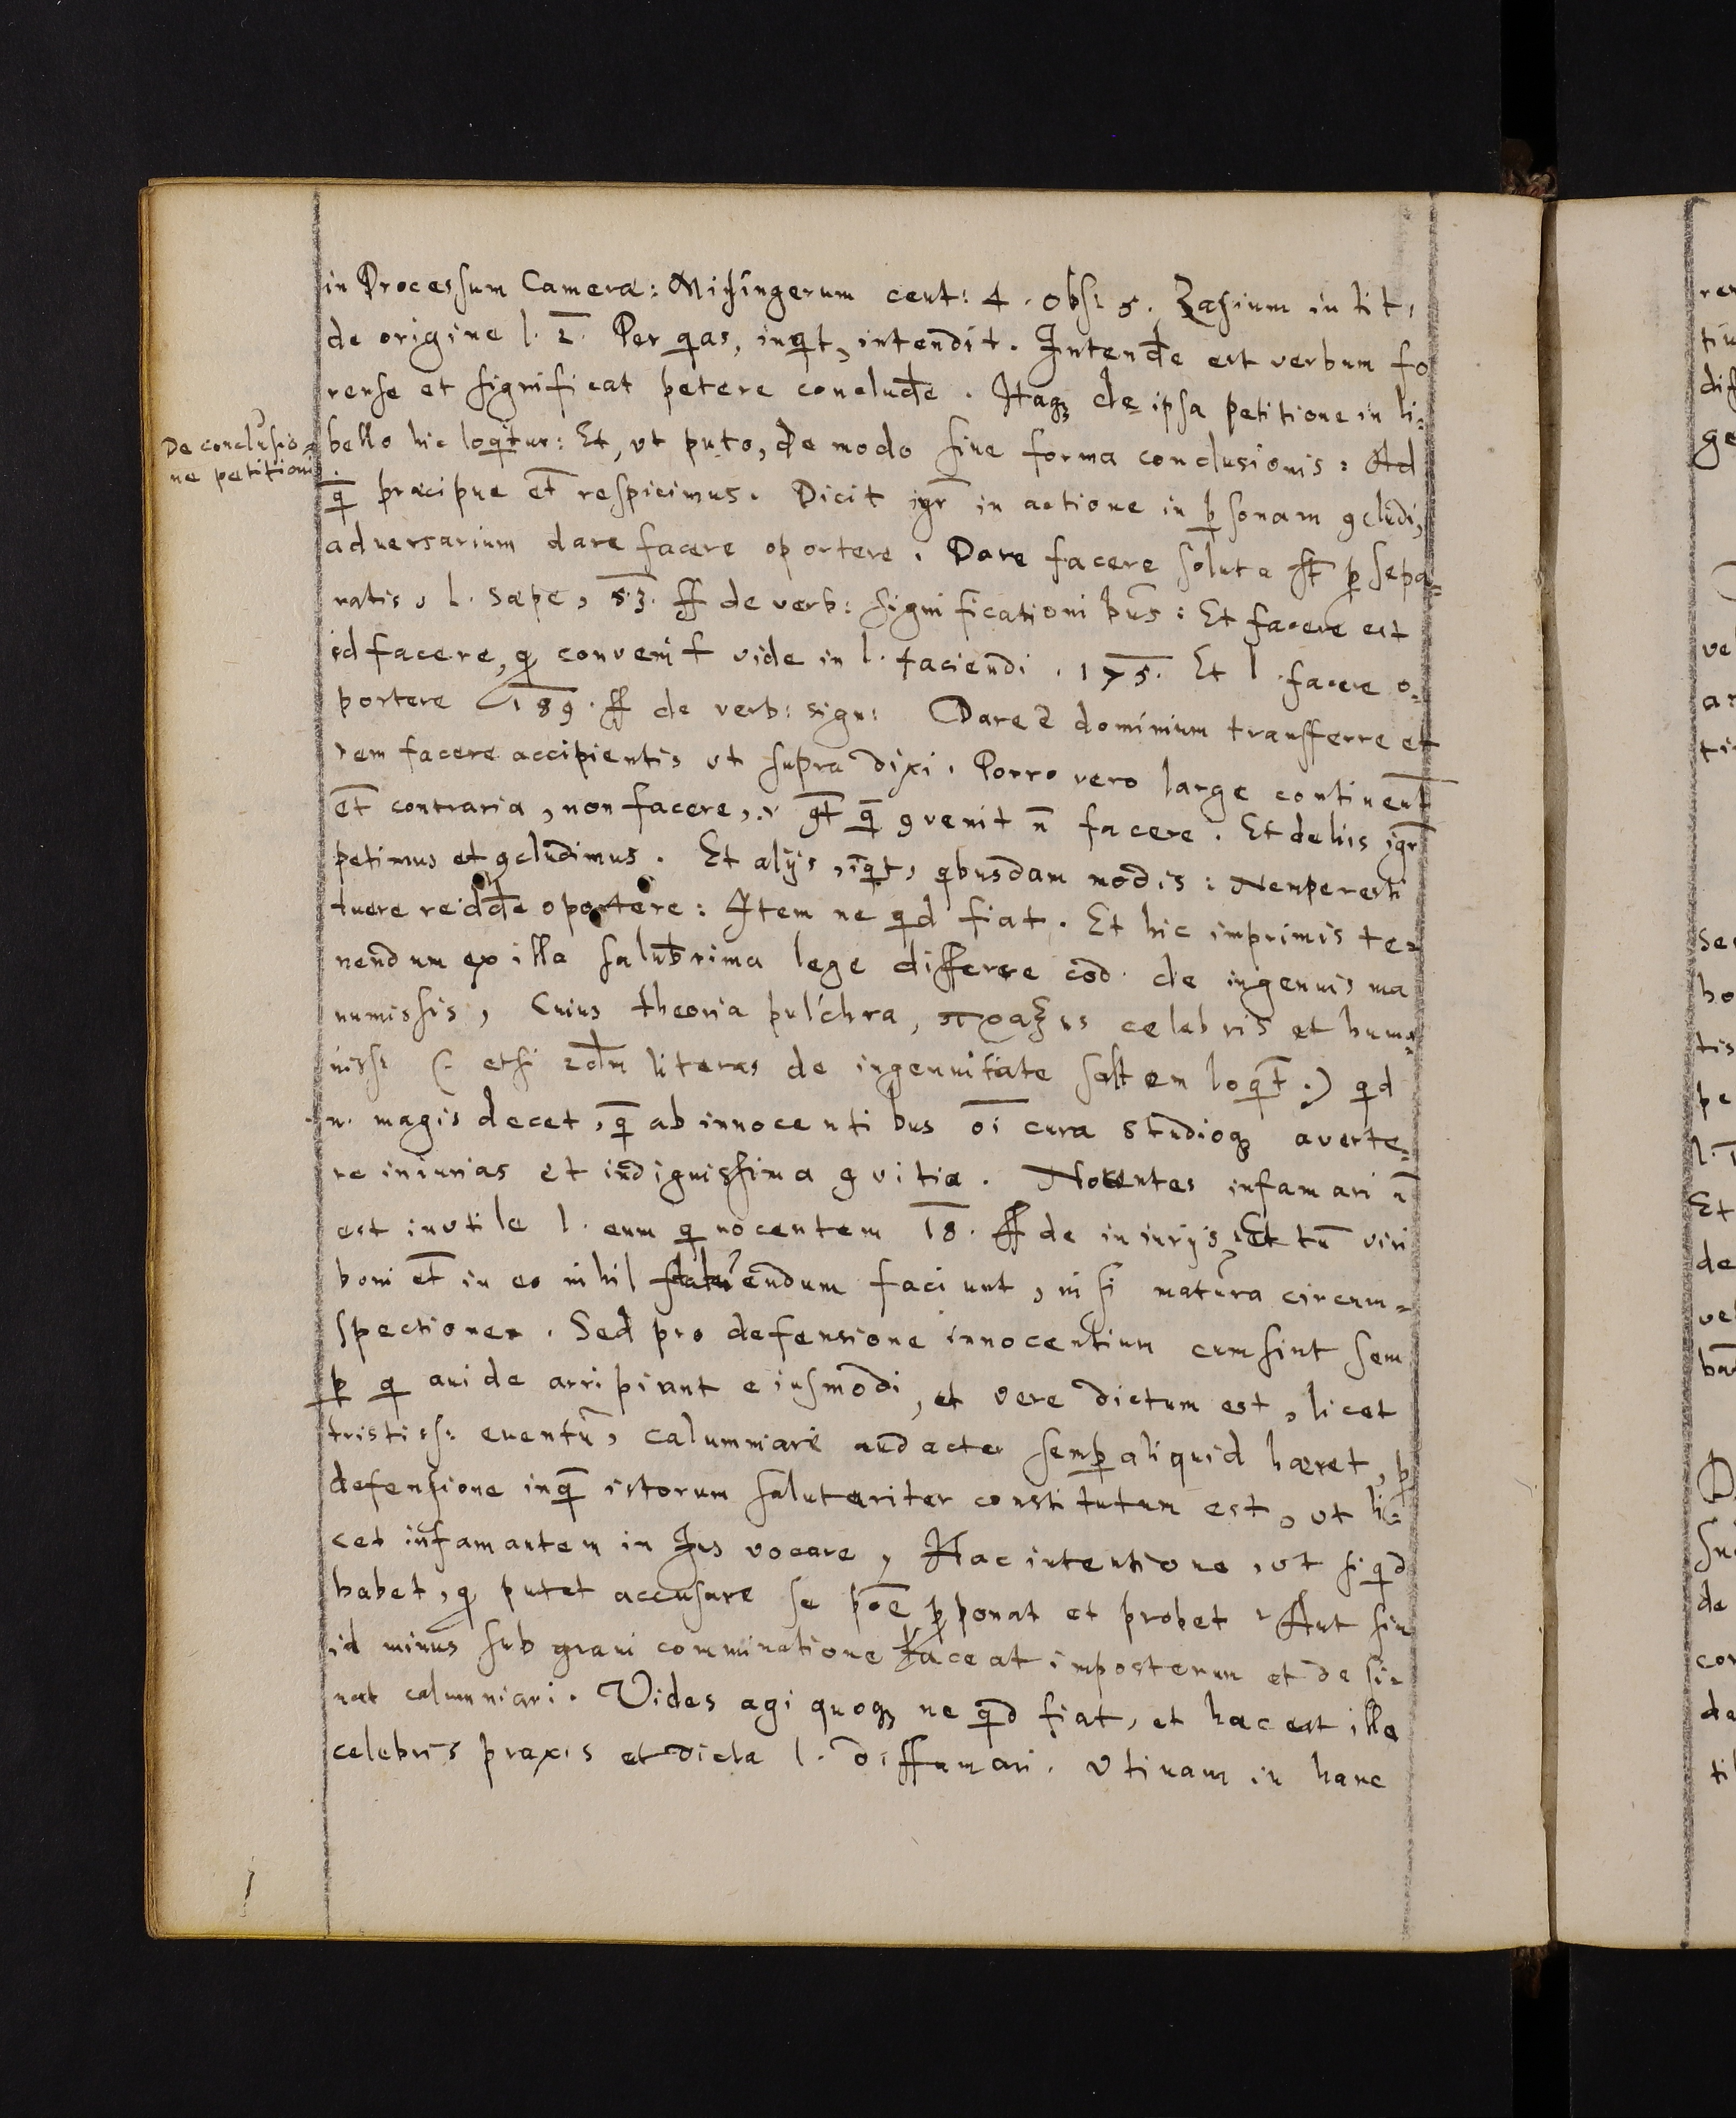 in Processum Cameræ: Minsingerum cent: 4. obs: 5. Zasium in tit,
de origine l. 2. Per qas, inqt, intendit. Intende est verbum fo
rense et significat petere conclude. Itaq de ipsa petitione in li=
De conclusio=
ne petitionis
bello hic loqitur: Et, ut puto, de modo sive forma conclusionis: Ad
q præcipue et respicimus. Dicit igr in actione in psonam 9cludi,
adversarium dare facere oportere. Dare facere soluta st p sepa=
ratis, l. sæpe, 53. ff de verb: significationibus: Et facere est
id facere, q convenit vide in l. faciendi. 175. Et l. facere o=
portere 189. ff de verb: sign: Dare 2 dominium transferre et
rem facere accipientis ut supra dixi. Porro vero large continent
et contraria, non facere, gt q 9venit n facere. Et de his igr
petimus et 9cludimus. Et alijs, iqt, qbusdam modis: Nempe resti
tuere redde oportere: Item ne qd fiat. Et hic imprimis te=
nendum ex illa saluberima lege differre cod. de ingenuis ma
numissis, Cuius theoria pulchra, πραξις celebris et huma
niss: (: etsi 2dm literas de ingenuitate saltem loqt:) qd
n. magis decet, q ab innocentibus oi cura studioq averte=
re iniurias et indignissima 9vitia. Nocentes infamari n
est inutile l. eum q nocentem 18. ff de iniurijs, Et tn viri
boni et in eo nihil endum faciunt, nisi matura circum=
spectione. Sed pro defensione innocentium cum sint sem
p q avide arripiant eiusmodi, et vere dictum est, licet
tristiss: eventu, calumniare audacter semp aliquid hæret, p
defensione inq istorum salutariter constitutum est, ut li=
cet infamantem in Jus vocare, Hac intentione, ut si qd
habet, q putet accusare se poe pponat et probet, Aut sin
id minus sub gravi comminatione taceat imposterum et desi=
nat calumniari. Vides agi quoq ne qd fiat, et hæc est illa
celebris praxis et dicta l. diffamari. Utinam in hanc